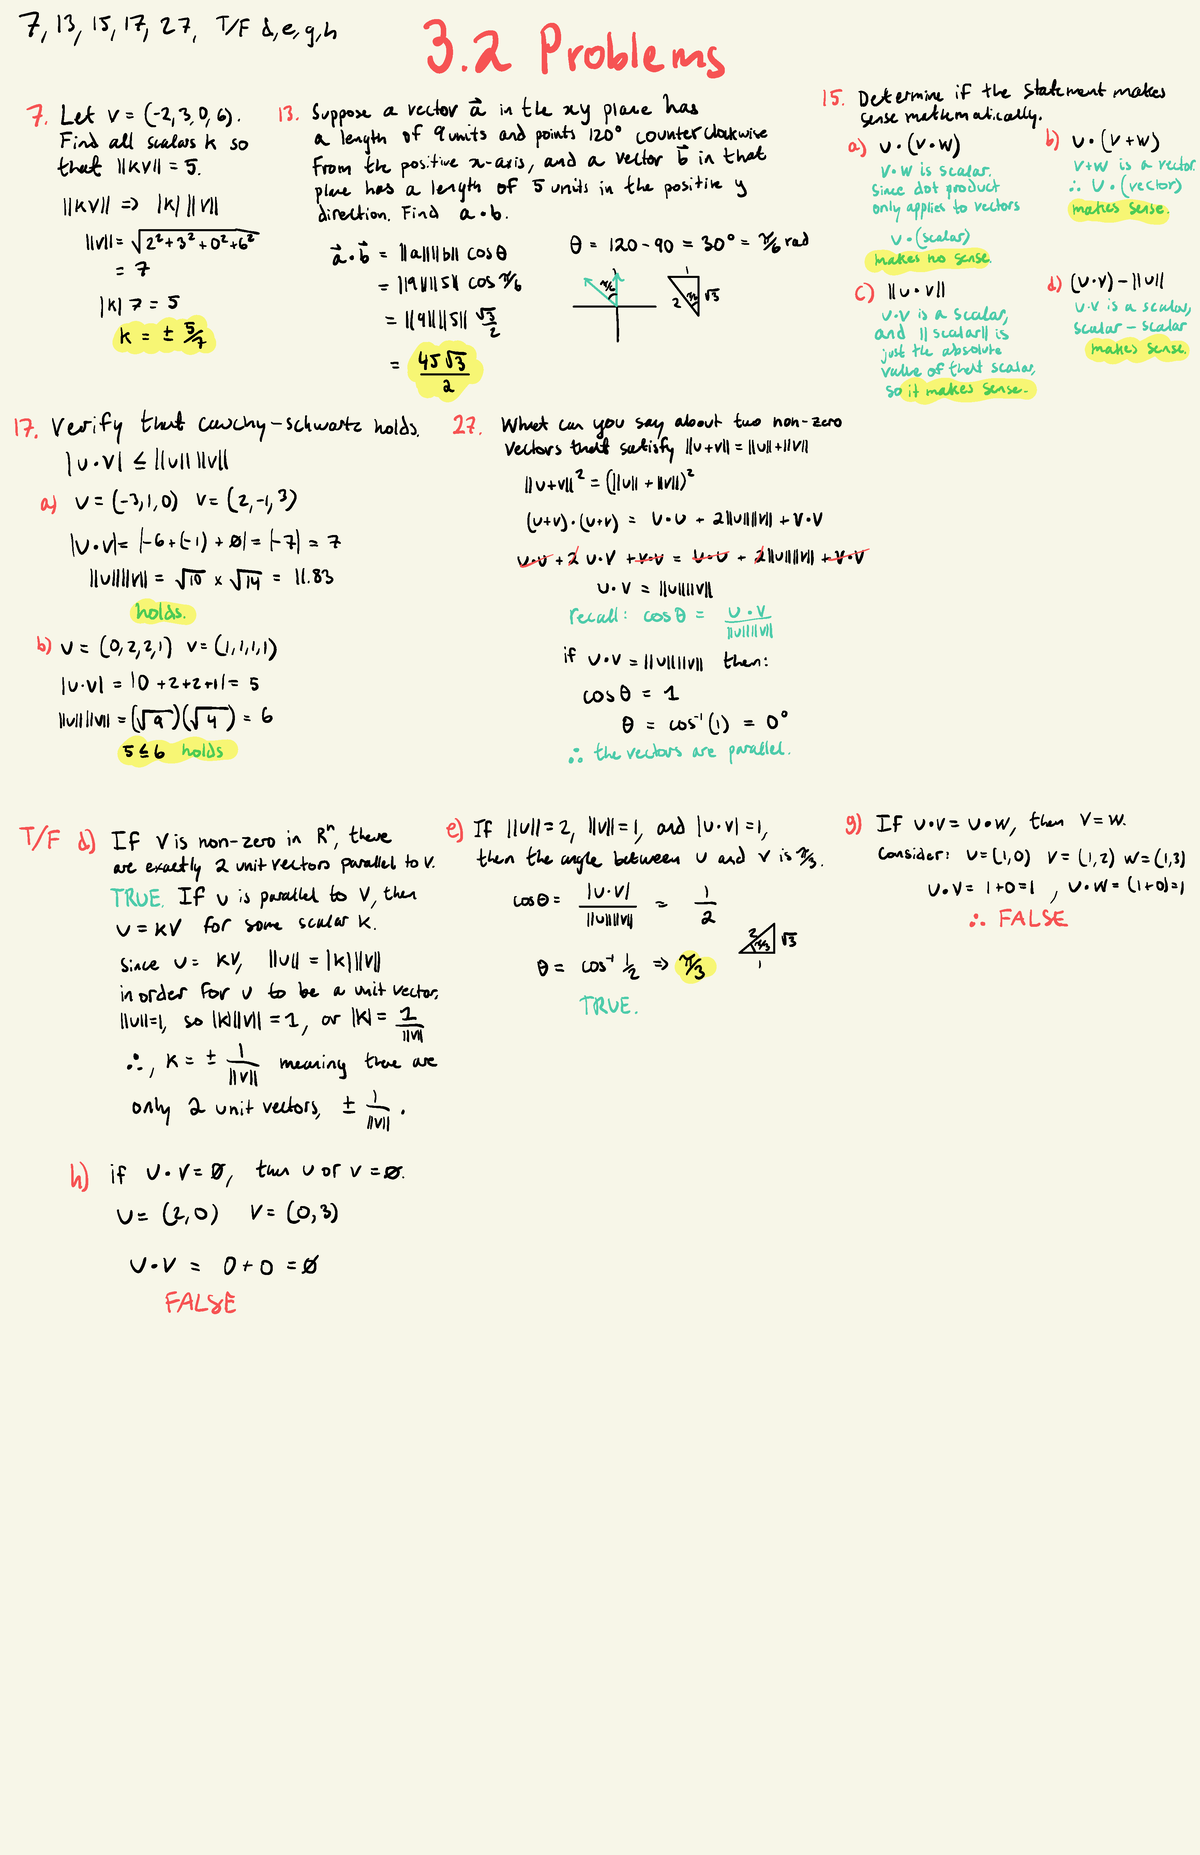 7, 13, 15, 17, 27, T/F d, e, g, h
3.2 Problems
7. Let v = (-2, 3, 0, 6).
Find all scalars k so
that ||kv|| = 5.
||kv|| => |k| ||v||
||v|| = √2²+3²+0²+6²
= 7
|k| 7 = 5
k = ± 5/7
13. Suppose a vector a⃗ in the xy plane has
a length of 9 units and points 120° counterclockwise
from the positive x-axis, and a vector b⃗ in that
plane has a length of 5 units in the positive y
direction. Find a • b.
a⃗ • b⃗ = ||a|| ||b|| cos θ
= ||9|| ||5|| cos π/6
= ||9|| ||5|| √3/2
= 45√3/2
θ = 120 - 90 = 30° = π/6 rad
π/6
1
2 π/6 √3
15. Determine if the statement makes
sense mathematically.
a) u • (v • w)
v • w is scalar.
Since dot product
only applies to vectors
u • (scalar)
makes no sense.
b) u • (v + w)
v+w is a vector.
∴ u • (vector)
makes sense.
c) ||u • v||
u•v is a scalar,
and ||scalar|| is
just the absolute
value of that scalar,
so it makes sense.
d) (u • v) - ||u||
u•v is a scalar,
scalar - scalar
makes sense.
17. Verify that cauchy-schwartz holds.
|u • v| ≤ ||u|| ||v||
a) u = (-3, 1, 0) v = (2, -1, 3)
|u•v| = |-6 + (-1) + 0| = |-7| = 7
||u|| ||v|| = √10 x √14 = 11.83
holds.
b) u = (0, 2, 2, 1) v = (1, 1, 1, 1)
|u•v| = |0 + 2 + 2 + 1| = 5
||u|| ||v|| = (√9)(√4) = 6
5 ≤ 6 holds
27. What can you say about two non-zero
vectors that satisfy ||u+v|| = ||u|| + ||v||
||u+v||² = (||u|| + ||v||)²
(u+v) • (u+v) = u•u + 2||u|| ||v|| + v•v
u•u + 2 u•v + v•v = u•u + 2||u|| ||v|| + v•v
u • v = ||u|| ||v||
recall: cos θ = u • v / ||u|| ||v||
if u•v = ||u|| ||v|| then:
cos θ = 1
θ = cos⁻¹(1) = 0°
∴ the vectors are parallel.
T/F d) If v is non-zero in Rⁿ, there
are exactly 2 unit vectors parallel to v.
TRUE. If u is parallel to v, then
u = kv for some scalar k.
Since u = kv, ||u|| = |k| ||v||
in order for u to be a unit vector,
||u||=1, so |k| ||v|| = 1, or |k| = 1/||v||
∴, k = ± 1/||v|| meaning there are
only 2 unit vectors, ± 1/||v||.
e) If ||u|| = 2, ||v|| = 1, and |u•v| = 1,
then the angle between u and v is π/3.
cos θ = |u•v| / ||u|| ||v|| = 1/2
2 π/3 √3
1
θ = cos⁻¹ 1/2 => π/3
TRUE.
g) If u•v = u•w, then v = w.
Consider: u = (1,0) v = (1,2) w = (1,3)
u•v = 1+0=1 , u•w = (1+0)=1
∴ FALSE
h) if u • v = 0̸, then u or v = 0̸.
u = (2, 0) v = (0, 3)
u • v = 0 + 0 = 0̸
FALSE